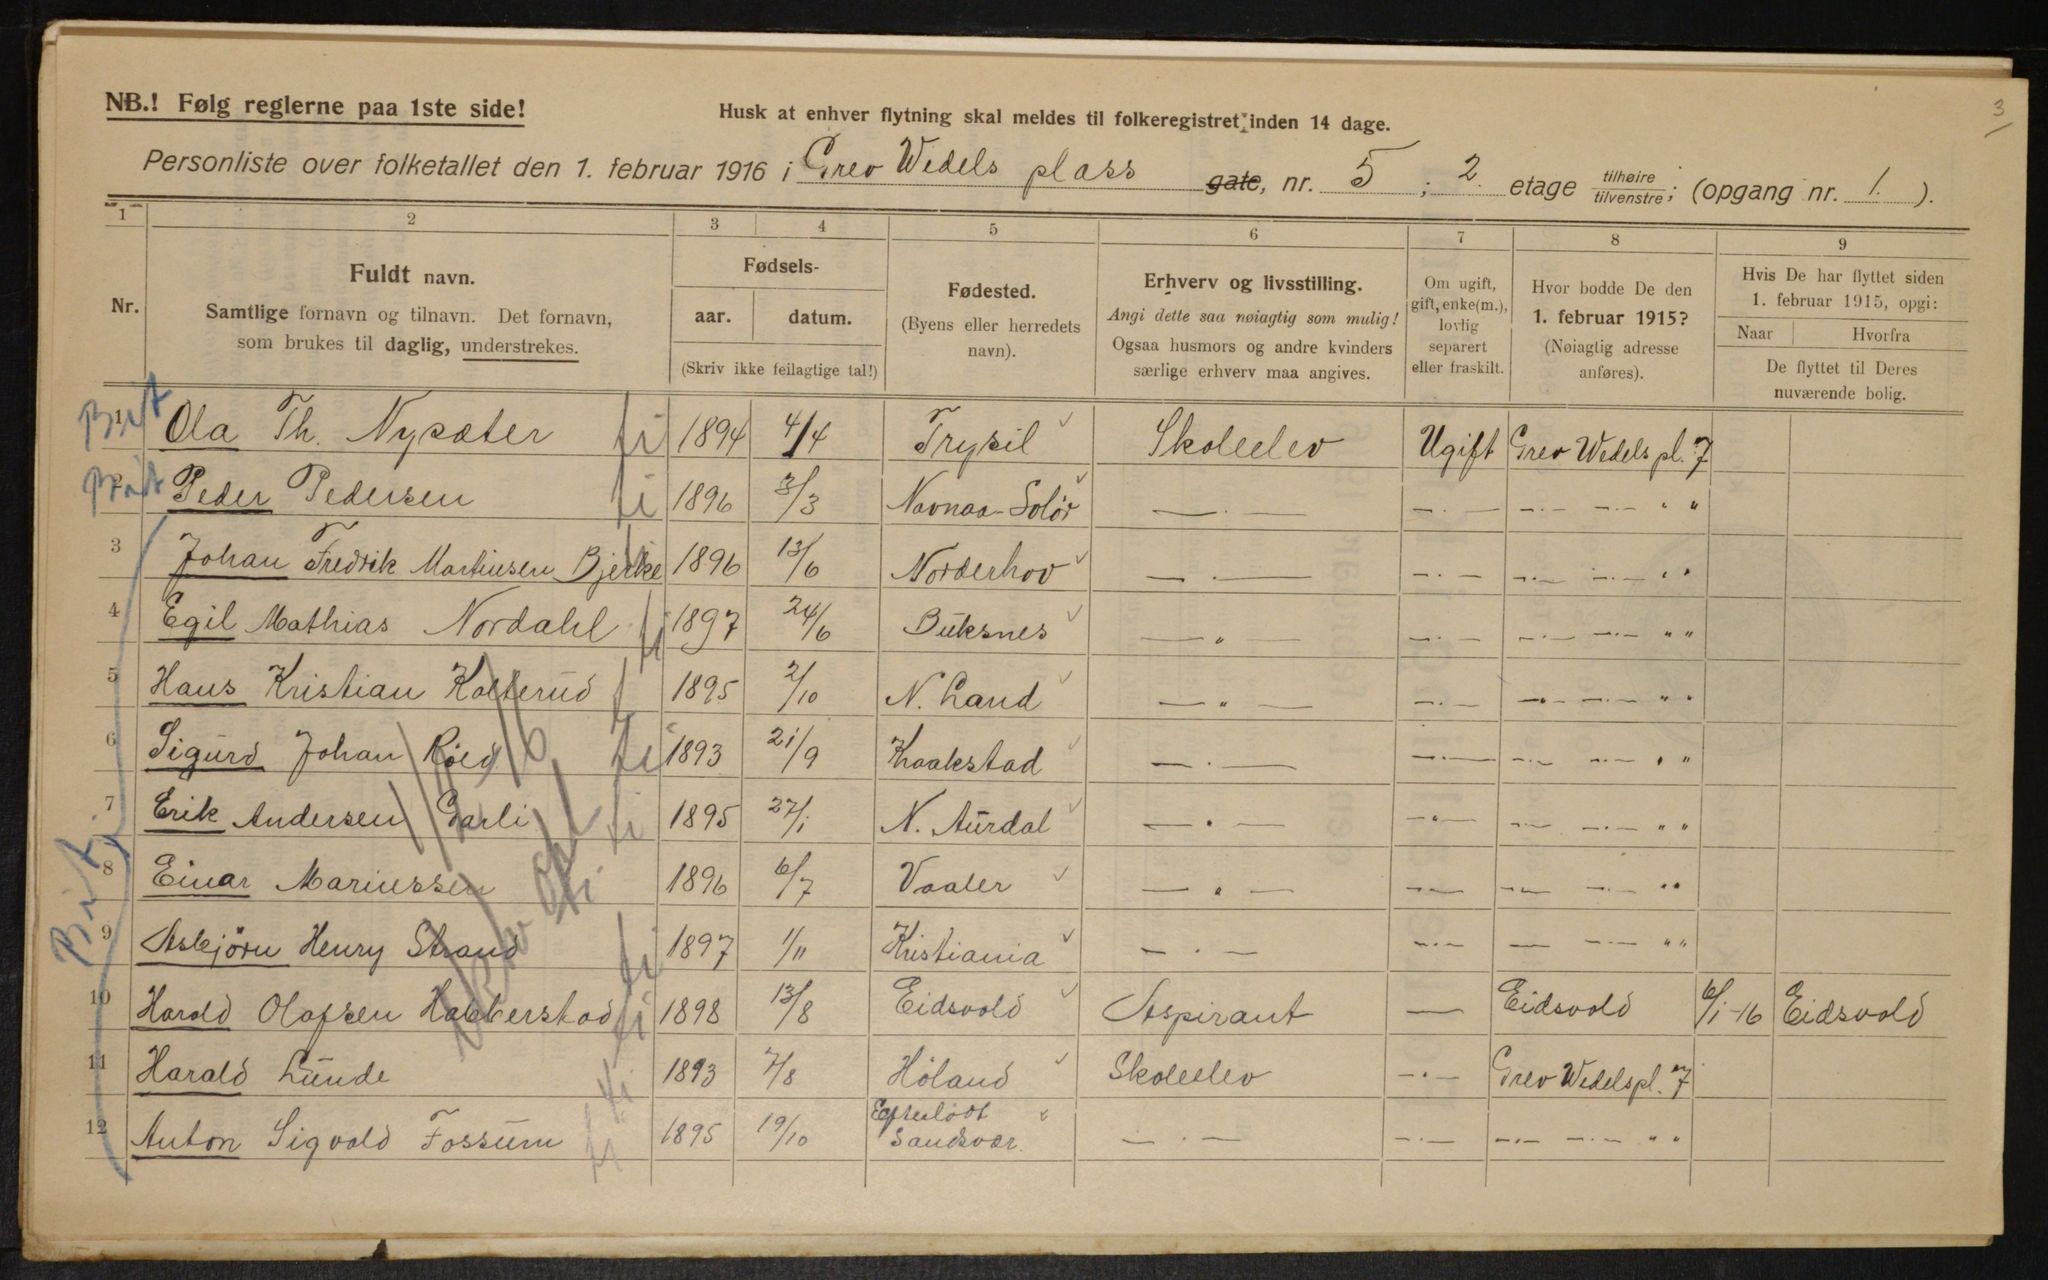 3
NB.! Følg reglerne paa 1ste side!
Husk at enhver flytning skal meldes til folkeregistret inden 14 dage.
Personliste over folketallet den 1. februar 1916 i Grev Wedels plass gate, nr. 5 ; 2. etage tilhøire/tilvenstre; (opgang nr. 1. ).
1 2 3 4 5 6 7 8 9
Nr. Fuldt navn. Samtlige fornavn og tilnavn. Det fornavn, som brukes til daglig, understrekes.
Fødsels- aar. datum. (Skriv ikke feilagtige tal!)
Fødested. (Byens eller herredets navn).
Erhverv og livsstilling. Angi dette saa nøiagtig som mulig! Ogsaa husmors og andre kvinders særlige erhverv maa angives.
Om ugift, gift, enke(m.), lovlig separert eller fraskilt.
Hvor bodde De den 1. februar 1915? (Nøiagtig adresse anføres).
Hvis De har flyttet siden 1. februar 1915, opgi: Naar Hvorfra De flyttet til Deres nuværende bolig.
1 Ola Th. Nysæter 1894 4/4 Trysil Skoleelev Ugift Grev Wedels pl. 7
2 Peder Pedersen 1896 3/3 Navnaa-Solör —·— —·— —·— —·— " "
3 Johan Fredrik Martinsen Bjerke 1896 13/6 Norderhov —·— —·— —·— —·— " "
4 Egil Mathias Nordahl 1897 24/6 Buksnes —"— —·— —·— —·— " "
5 Hans Kristian Kolterud 1895 2/10 N. Land —"— —·— —·— —·— " "
6 Sigurd Johan Röed 1893 21/9 Kraakstad —·— —·— —·— —·— " "
7 Erik Andersen Garli 1895 27/1 N. Aurdal —·— —·— —·— —·— " "
8 Einar Mariussen 1896 6/7 Vaaler —"— —·— —·— —·— " "
9 Asbjörn Henry Strand 1897 1/11 Kristiania —·— —·— — —·— " "
10 Harald Olafsen Habberstad 1898 13/8 Eidsvold Aspirant — Eidsvold 6/1-16 Eidsvold
11 Harald Lunde 1893 7/8 Höland Skoleelev —·— Grev Wedelspl. 7
12 Anton Sigvald Fossum 1895 19/10 Efterlödt Sandsvær. —·— —·— —·— —·— " "